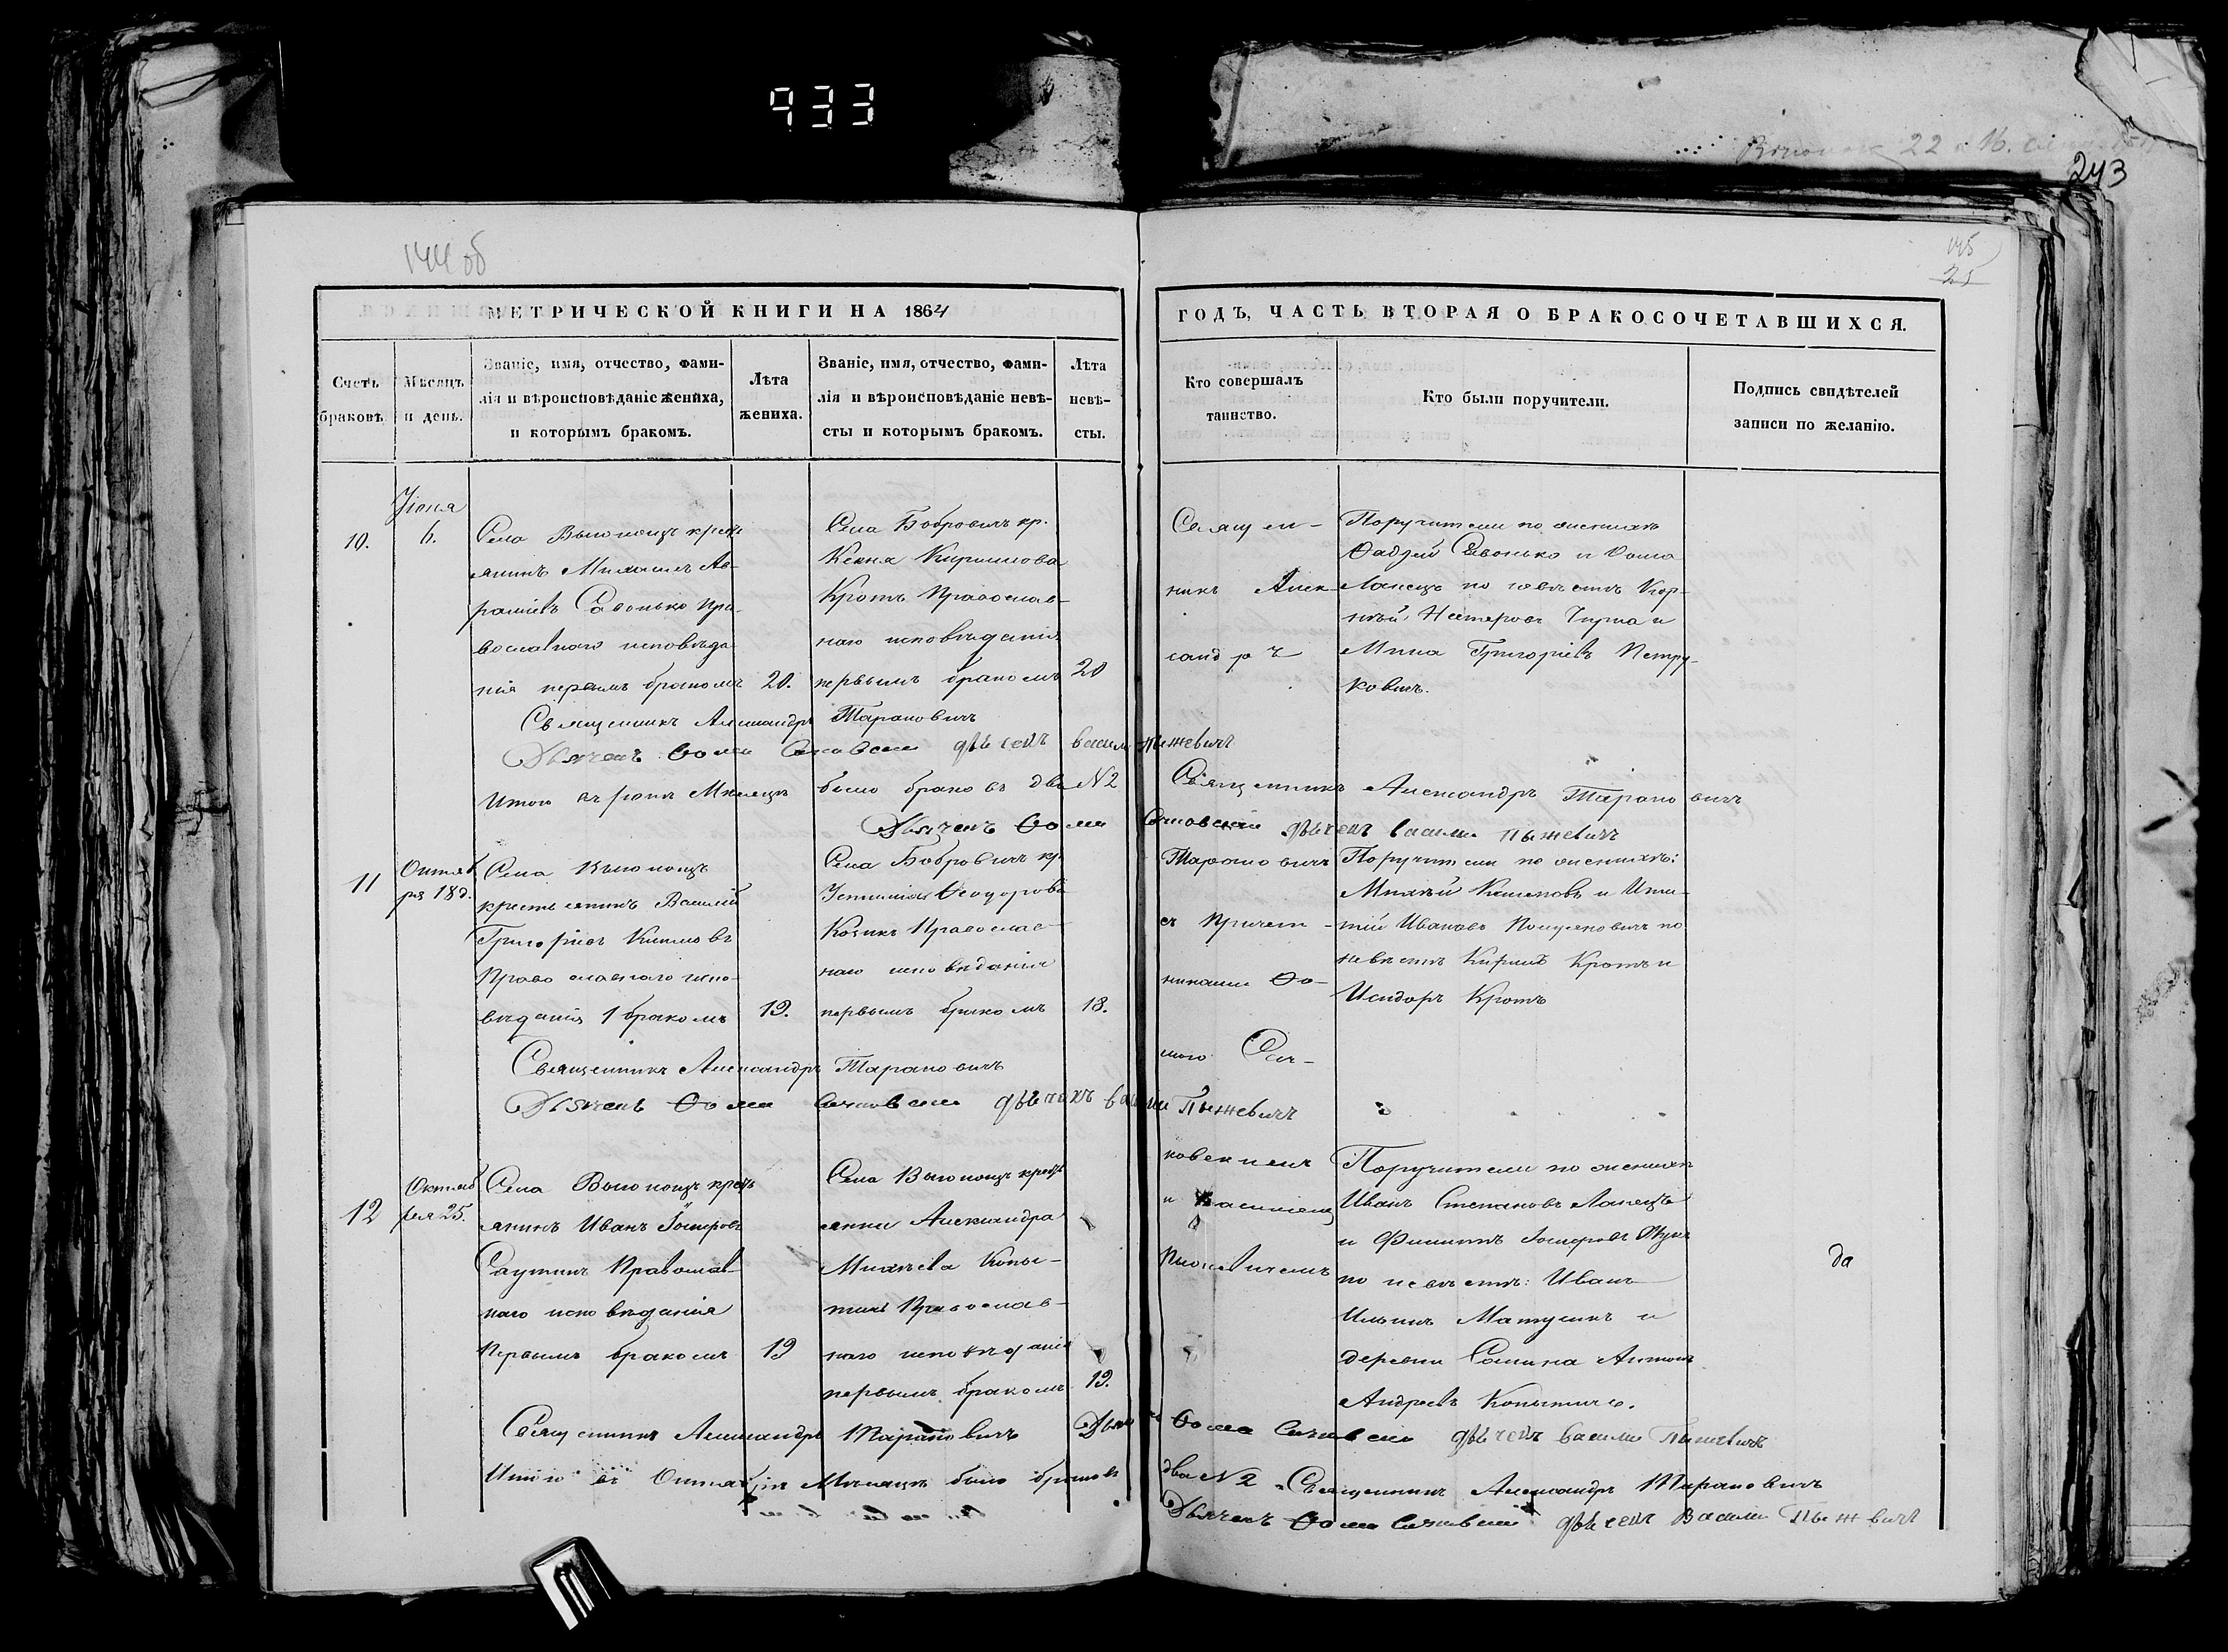 933
243
144 об
145
25
МЕТРИЧЕСКОЙ КНИГИ НА 1864
ГОДЪ, ЧАСТЬ ВТОРАЯ О БРАКОСОЧЕТАВШИХСЯ.
Счетъ браковъ.
Мѣсяцъ и день.
Званіе, имя, отчество, фами-
лія и вѣроисповѣданіе жениха,
и которымъ бракомъ.
Лѣта
жениха.
Званіе, имя, отчество, фами-
лія и вѣроисповѣданіе невѣ-
сты и которымъ бракомъ.
Лѣта
невѣ-
сты.
Кто совершалъ
таинство.
Кто были поручители.
Подпись свидѣтелей
записи по желанію.
10.
Іюня
6.
Села Выгонощъ кресть
янинъ Михаилъ Ав-
рамовъ Савонько пра-
вославнаго исповѣда
нія первымъ бракомъ
20.
Села Бобровичъ кр.
Кротъ Православ-
наго исповѣданія
первымъ бракомъ
20
Священ-
никъ Алек-
сандръ
Поручители по женихѣ
Фадей Савонько и Фома
Лапецъ по невѣстѣ Кор-
нѣй Нестеровъ и
Мина Григорьевъ Петру-
ковичъ.
Священникъ Александръ Тарановичъ
Дьячекъ Фома дьячекъ Василій Пыжевичъ
Итого въ Іюнѣ Мѣсяцѣ было браковъ два N2
Священникъ Александръ Тарановичъ
Дьячекъ Фома дьячекъ Василій Пыжевичъ
11
Октяб
ря 18д.
Села Выгонощъ
крестьянинъ Василій
Григорьевъ Климовъ
Православнаго испо-
вѣданія 1 бракомъ
19.
Села Бобровичъ кр
Устинія Ѳеодорова
Козикъ Православ-
наго исповѣданія
первымъ бракомъ
18.
Тарановичъ
съ Причет-
никами Фо-
мою
Поручители по женихѣ:
Иванъ
невѣстѣ Кирилъ Кротъ и
Исидоръ Кротъ
Священникъ Александръ Тарановичъ
Дьячекъ Фома дьячекъ Василій Пыжевичъ
12
Октяб
ря 25.
Села Выгонощъ кресть
янинъ Иванъ Іосифовъ
Саутинъ Православ-
наго исповѣданія
Первымъ бракомъ
19
Села Выгонощъ кресть
янка Александра
Михѣева Копы-
тичъ Православ-
наго исповѣданія
первымъ бракомъ
19.
и Василіемъ
Пыжевичемъ
Поручители по женихѣ
Иванъ Степановъ Лапецъ
и Филиппъ Іосифовъ Жукъ
по невѣстѣ: Иванъ
Ильинъ Матусикъ и
деревни Сомина Антонъ
Андреевъ Копытичъ.
да
Священникъ Александръ Тарановичъ Дьячекъ Фома дьячекъ Василій Пыжевичъ
Итого въ Октябрѣ Мѣсяцѣ было браковъ два N2 Священникъ Александръ Тарановичъ
Дьячекъ Фома дьячекъ Василій Пыжевичъ